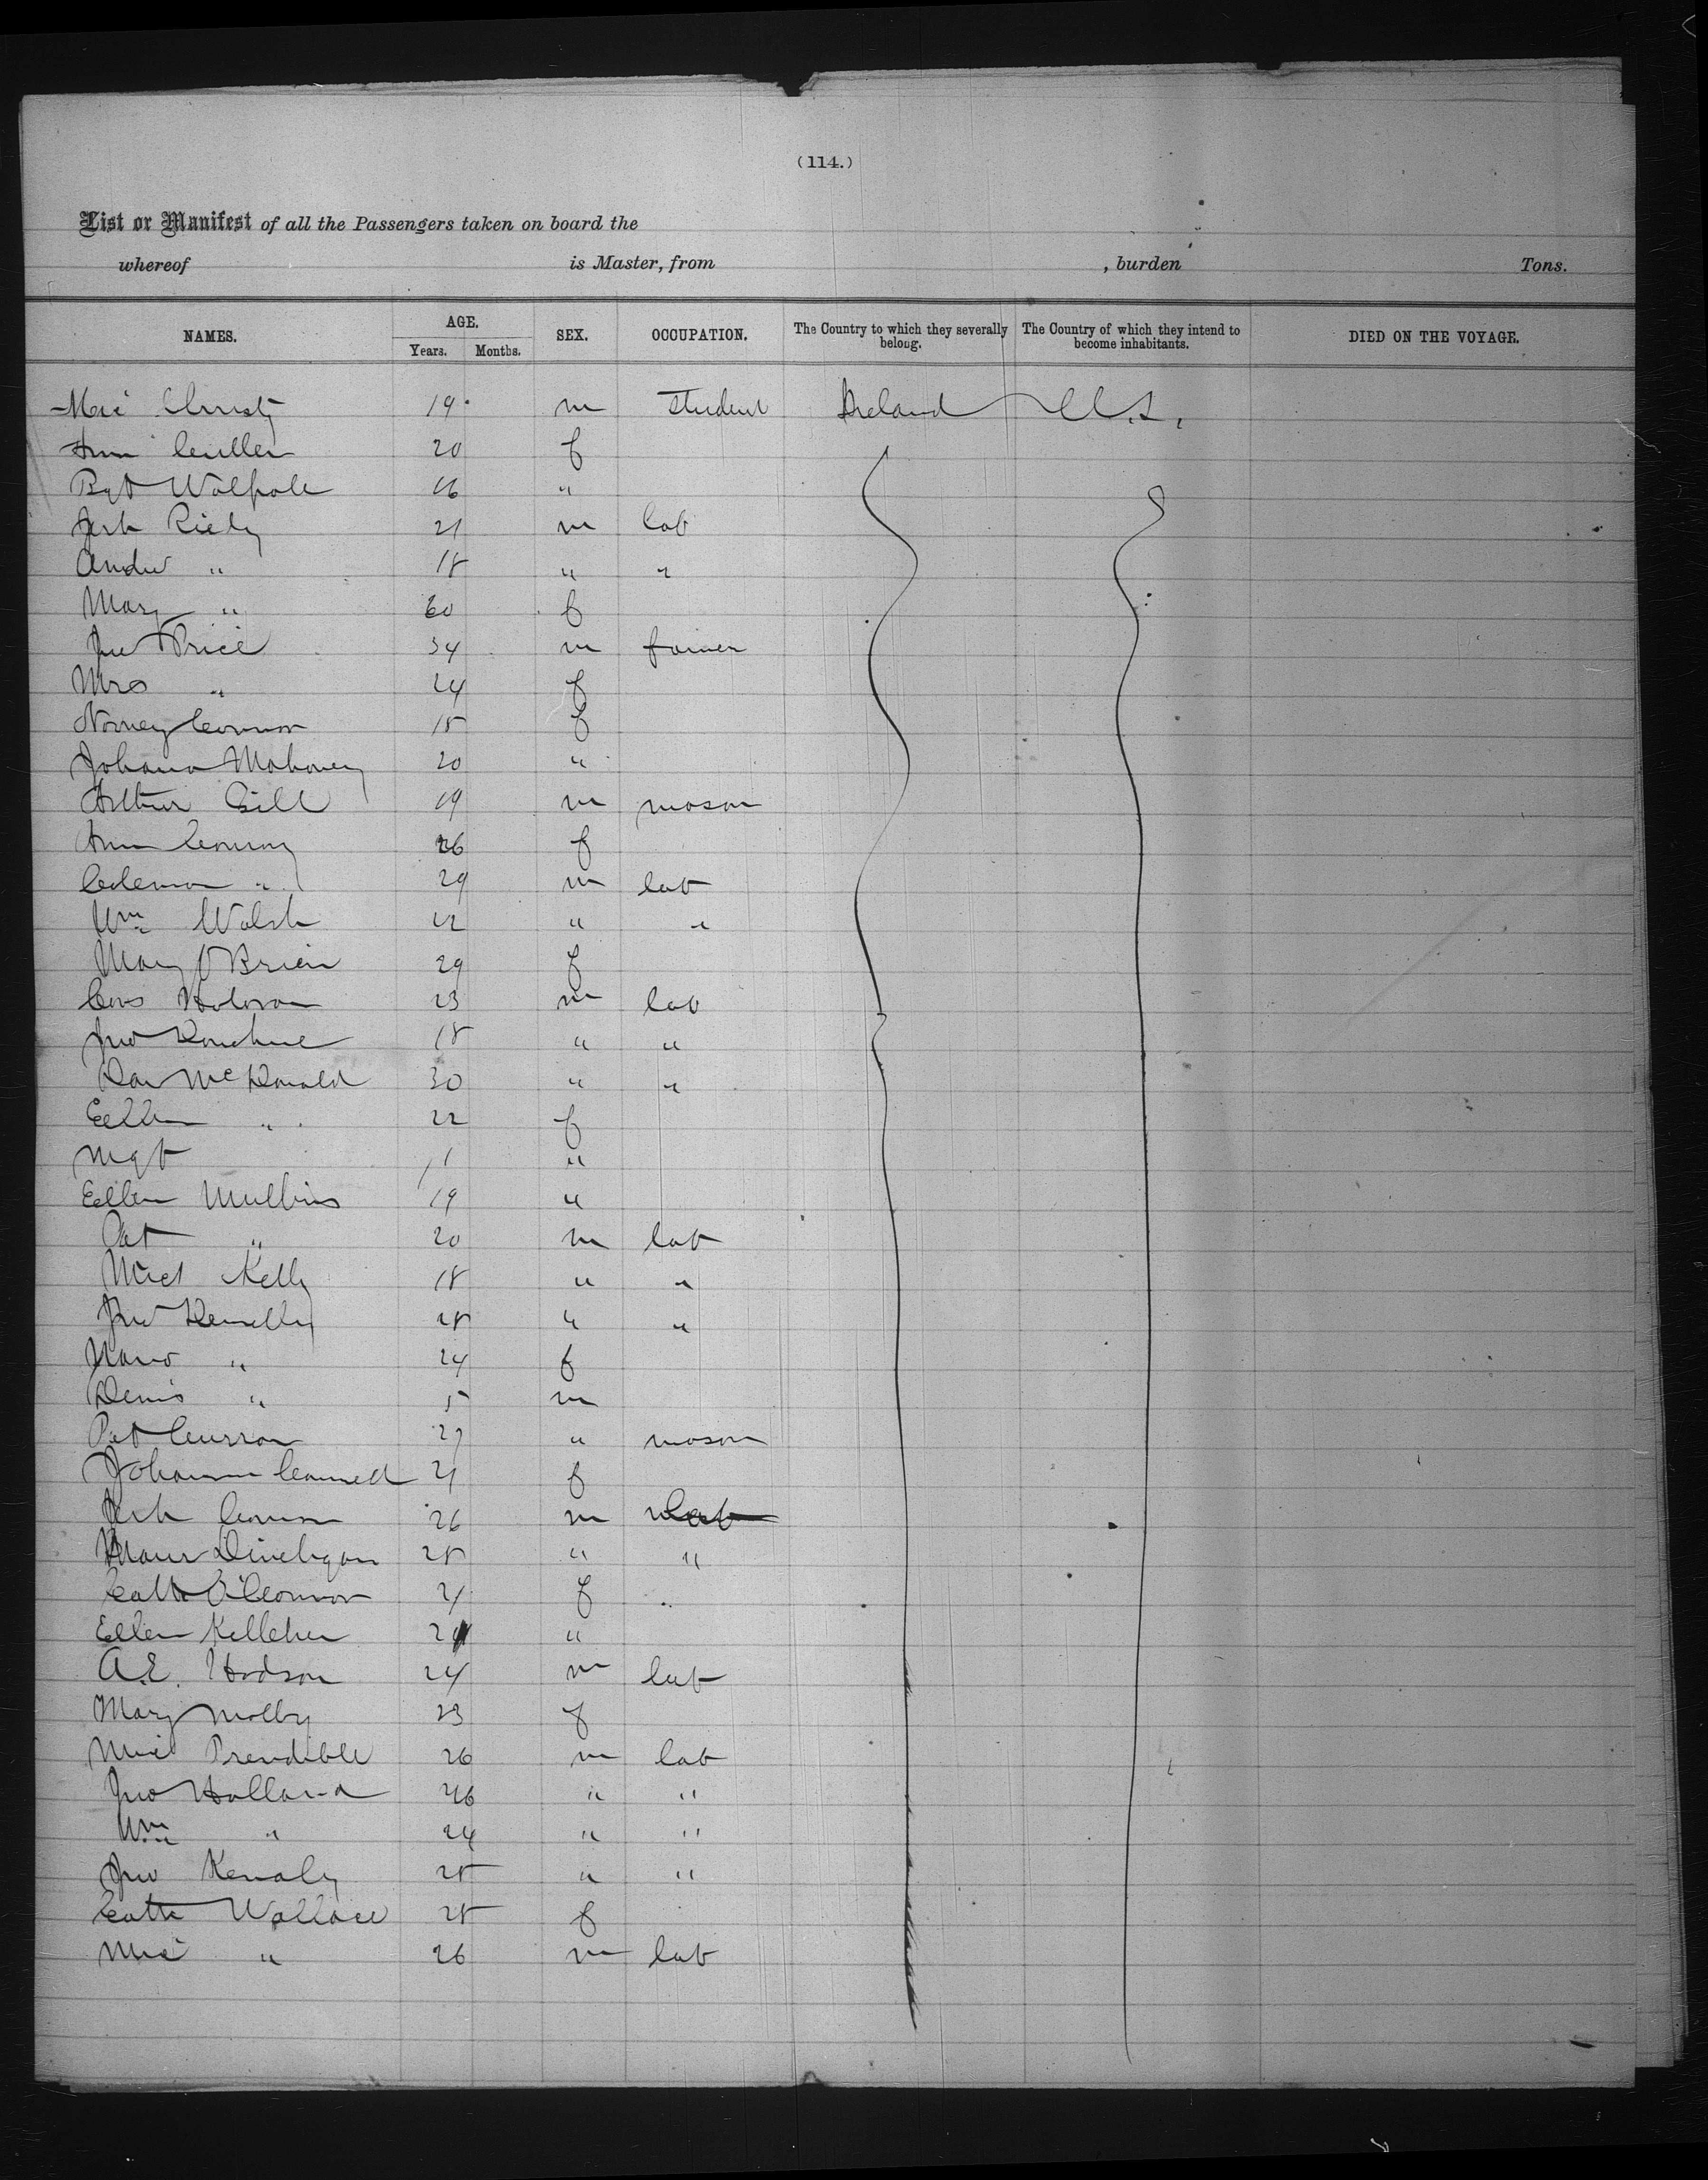 (114.)
List or Manifest of all the Passengers taken on board the
whereof is Master, from , burden Tons.
NAMES. AGE. Years. Months. SEX. OCCUPATION. The Country to which they severally belong. The Country of which they intend to become inhabitants. DIED ON THE VOYAGE.
Mic Christy 19 m student Ireland U.S.
Ann Cullen 20 f
Bgt Walpole 16 "
Jerh Riedy 21 m lab
Andw " 18 " "
Mary " 60 f
Jno Price 34 m farmer
Mrs " 24 f
Norney Connor 18 f
Johana Mahoney 20 "
Arthur Gill 19 m mason
Ann Conway 26 f
Coleman " 29 m lab
Wm Walsh 22 " "
Mary O'Brien 29 f
Cors Holoran 23 m lab
Jno Donohue 18 " "
Dan McDonald 30 " "
Ellen " 22 f
Mgt 11 "
Ellen Mullins 19 "
Pat " 20 m lab
Micl Kelly 18 " "
Jno Kennelly 28 " "
Nano " 24 f
Denis " 5 m
Pat Curran 27 " mason
Johanna Connell 21 f
Jerh Connor 26 m lab
Maur Dinehgan 28 " "
Cath O'Connor 21 f
Ellen Kelleher 24 "
A.E. Hodson 24 m lab
Mary Molby 23 f
Micl Prendible 26 m lab
Jno Holland 26 " "
Wm " 24 " "
Jno Kenaly 28 " "
Cath Wallace 28 f
Mic " 26 m lab